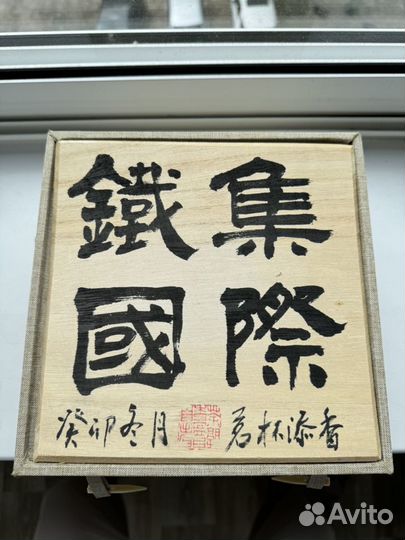 鐵集
國際
癸卯冬月 茗杯添香
Avito